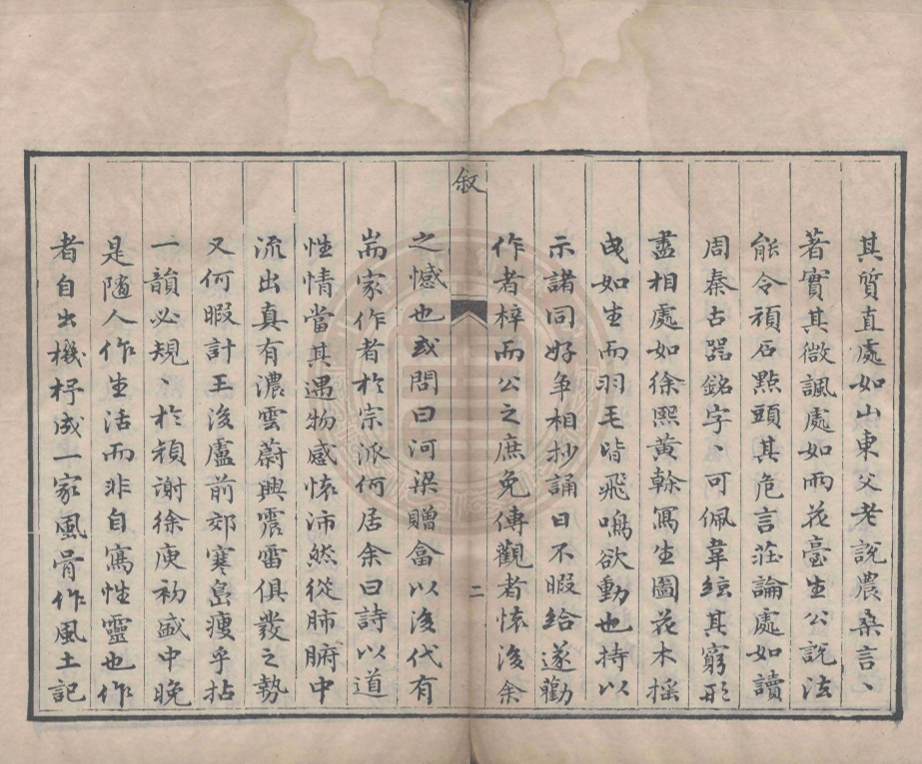 其質直處如山東父老說農桑言、
著實其微諷處如雨花臺生公說法
能令頑石點頭其危言莊論處如讀
周秦古器銘字、可佩韋絃其窮形
盡相處如徐熙黃榦寫生圖花木搖
曳如生而羽毛皆飛鳴欲動也持以
示諸同好爭相抄誦日不暇給遂勸
作者梓而公之庶免傳觀者懷後余
叙
二
之憾也或問曰河梁贈畣以後代有
耑家作者於宗派何居余曰詩以道
性情當其遇物感懷沛然從肺腑中
流出真有濃雲蔚興震雷俱發之勢
又何暇計王後盧前郊寒島瘦乎拈
一韻必規、於顏謝徐庾初盛中晚
是隨人作生活而非自寫性靈也作
者自出機杼成一家風骨作風土記